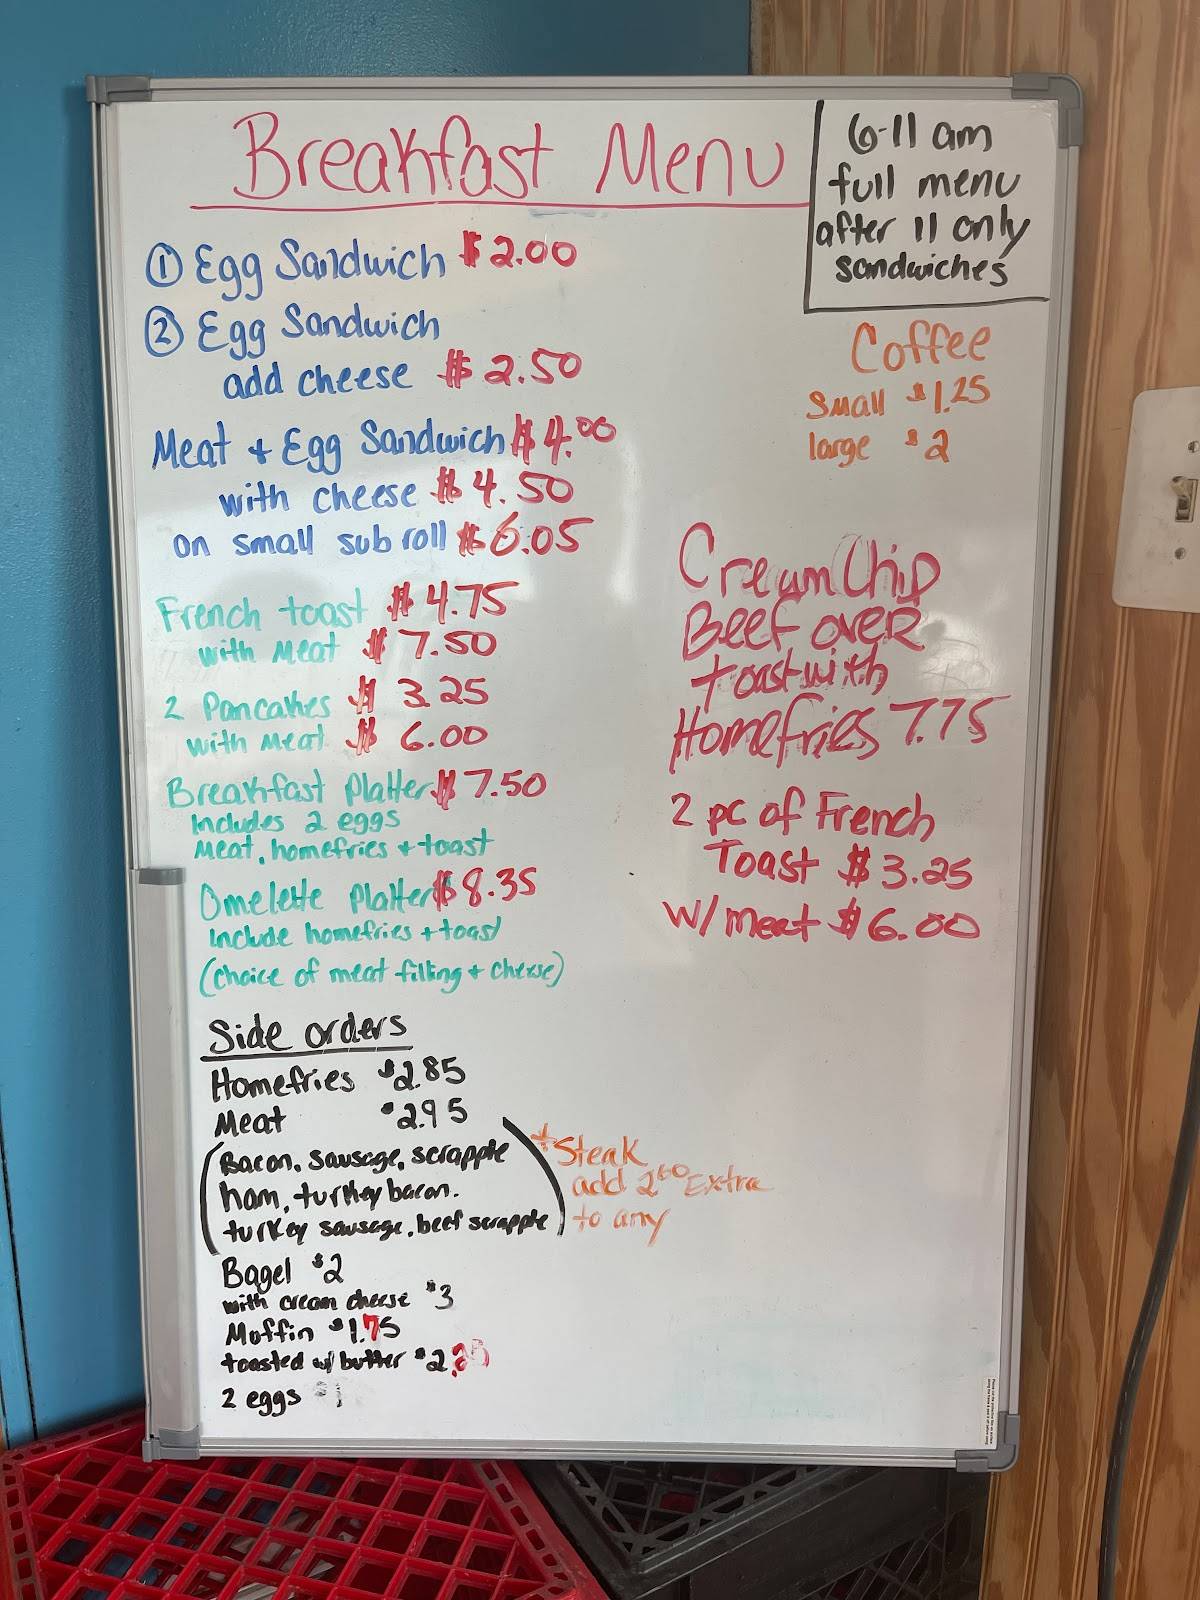 Breakfast Menu
6-11 am
full menu
after 11 only
sandwiches
① Egg Sandwich $2.00
② Egg Sandwich
add cheese $2.50
Meat + Egg Sandwich $4.00
with cheese $4.50
on small sub roll $6.05
French toast $4.75
with Meat $7.50
2 Pancakes $3.25
with Meat $6.00
Breakfast Platter $7.50
Includes 2 eggs
Meat, homefries + toast
Omelette Platter $8.35
Include homefries + toast
(choice of meat filling + cheese)
Side orders
Homefries $2.85
Meat $2.95
(Bacon, sausage, scrapple
ham, turkey bacon.
turkey sausage, beef scrapple)
*Steak
add 2.00 Extra
to any
Bagel $2
with cream cheese $3
Moffin $1.75
toasted w/ butter $2.25
2 eggs
Coffee
Small $1.25
large $2
Cream Chip
Beef over
toast with
Homefries 7.75
2 pc of French
Toast $3.25
w/ meat $6.00